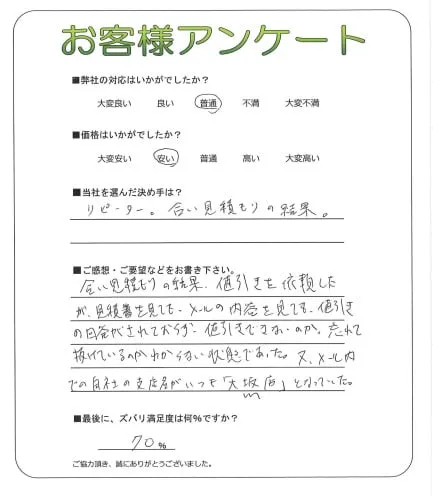 お客様アンケート
■弊社の対応はいかがでしたか？
大変良い 良い 普通 不満 大変不満
■価格はいかがでしたか？
大変安い 安い 普通 高い 大変高い
■当社を選んだ決め手は？
リピーター。合い見積もりの結果。
■ご感想・ご要望などをお書き下さい。
合い見積もりの結果、値引きを依頼した
が、見積書を見ても、メールの内容を見ても、値引き
の回答がされておらず、値引きできないのか、忘れて
抜けているのかわからない状態であった。又、メール内
での自社の支店名がいつも「大坂店」となっていた。
■最後に、ズバリ満足度は何%ですか？
70%
ご協力頂き、誠にありがとうございました。